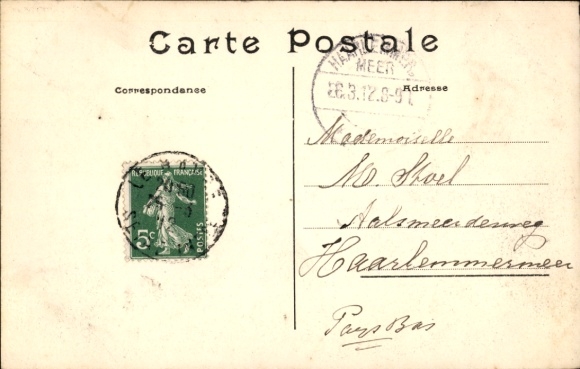 Carte Postale
Correspondance
Adresse
HAARLEMMER
MEER
3.12.8-9
REPUBLIQUE FRANÇAISE
5c
POSTES
Mademoiselle
M. Stoel
Aalsmeerderweg
Haarlemmermeer
Pays Bas